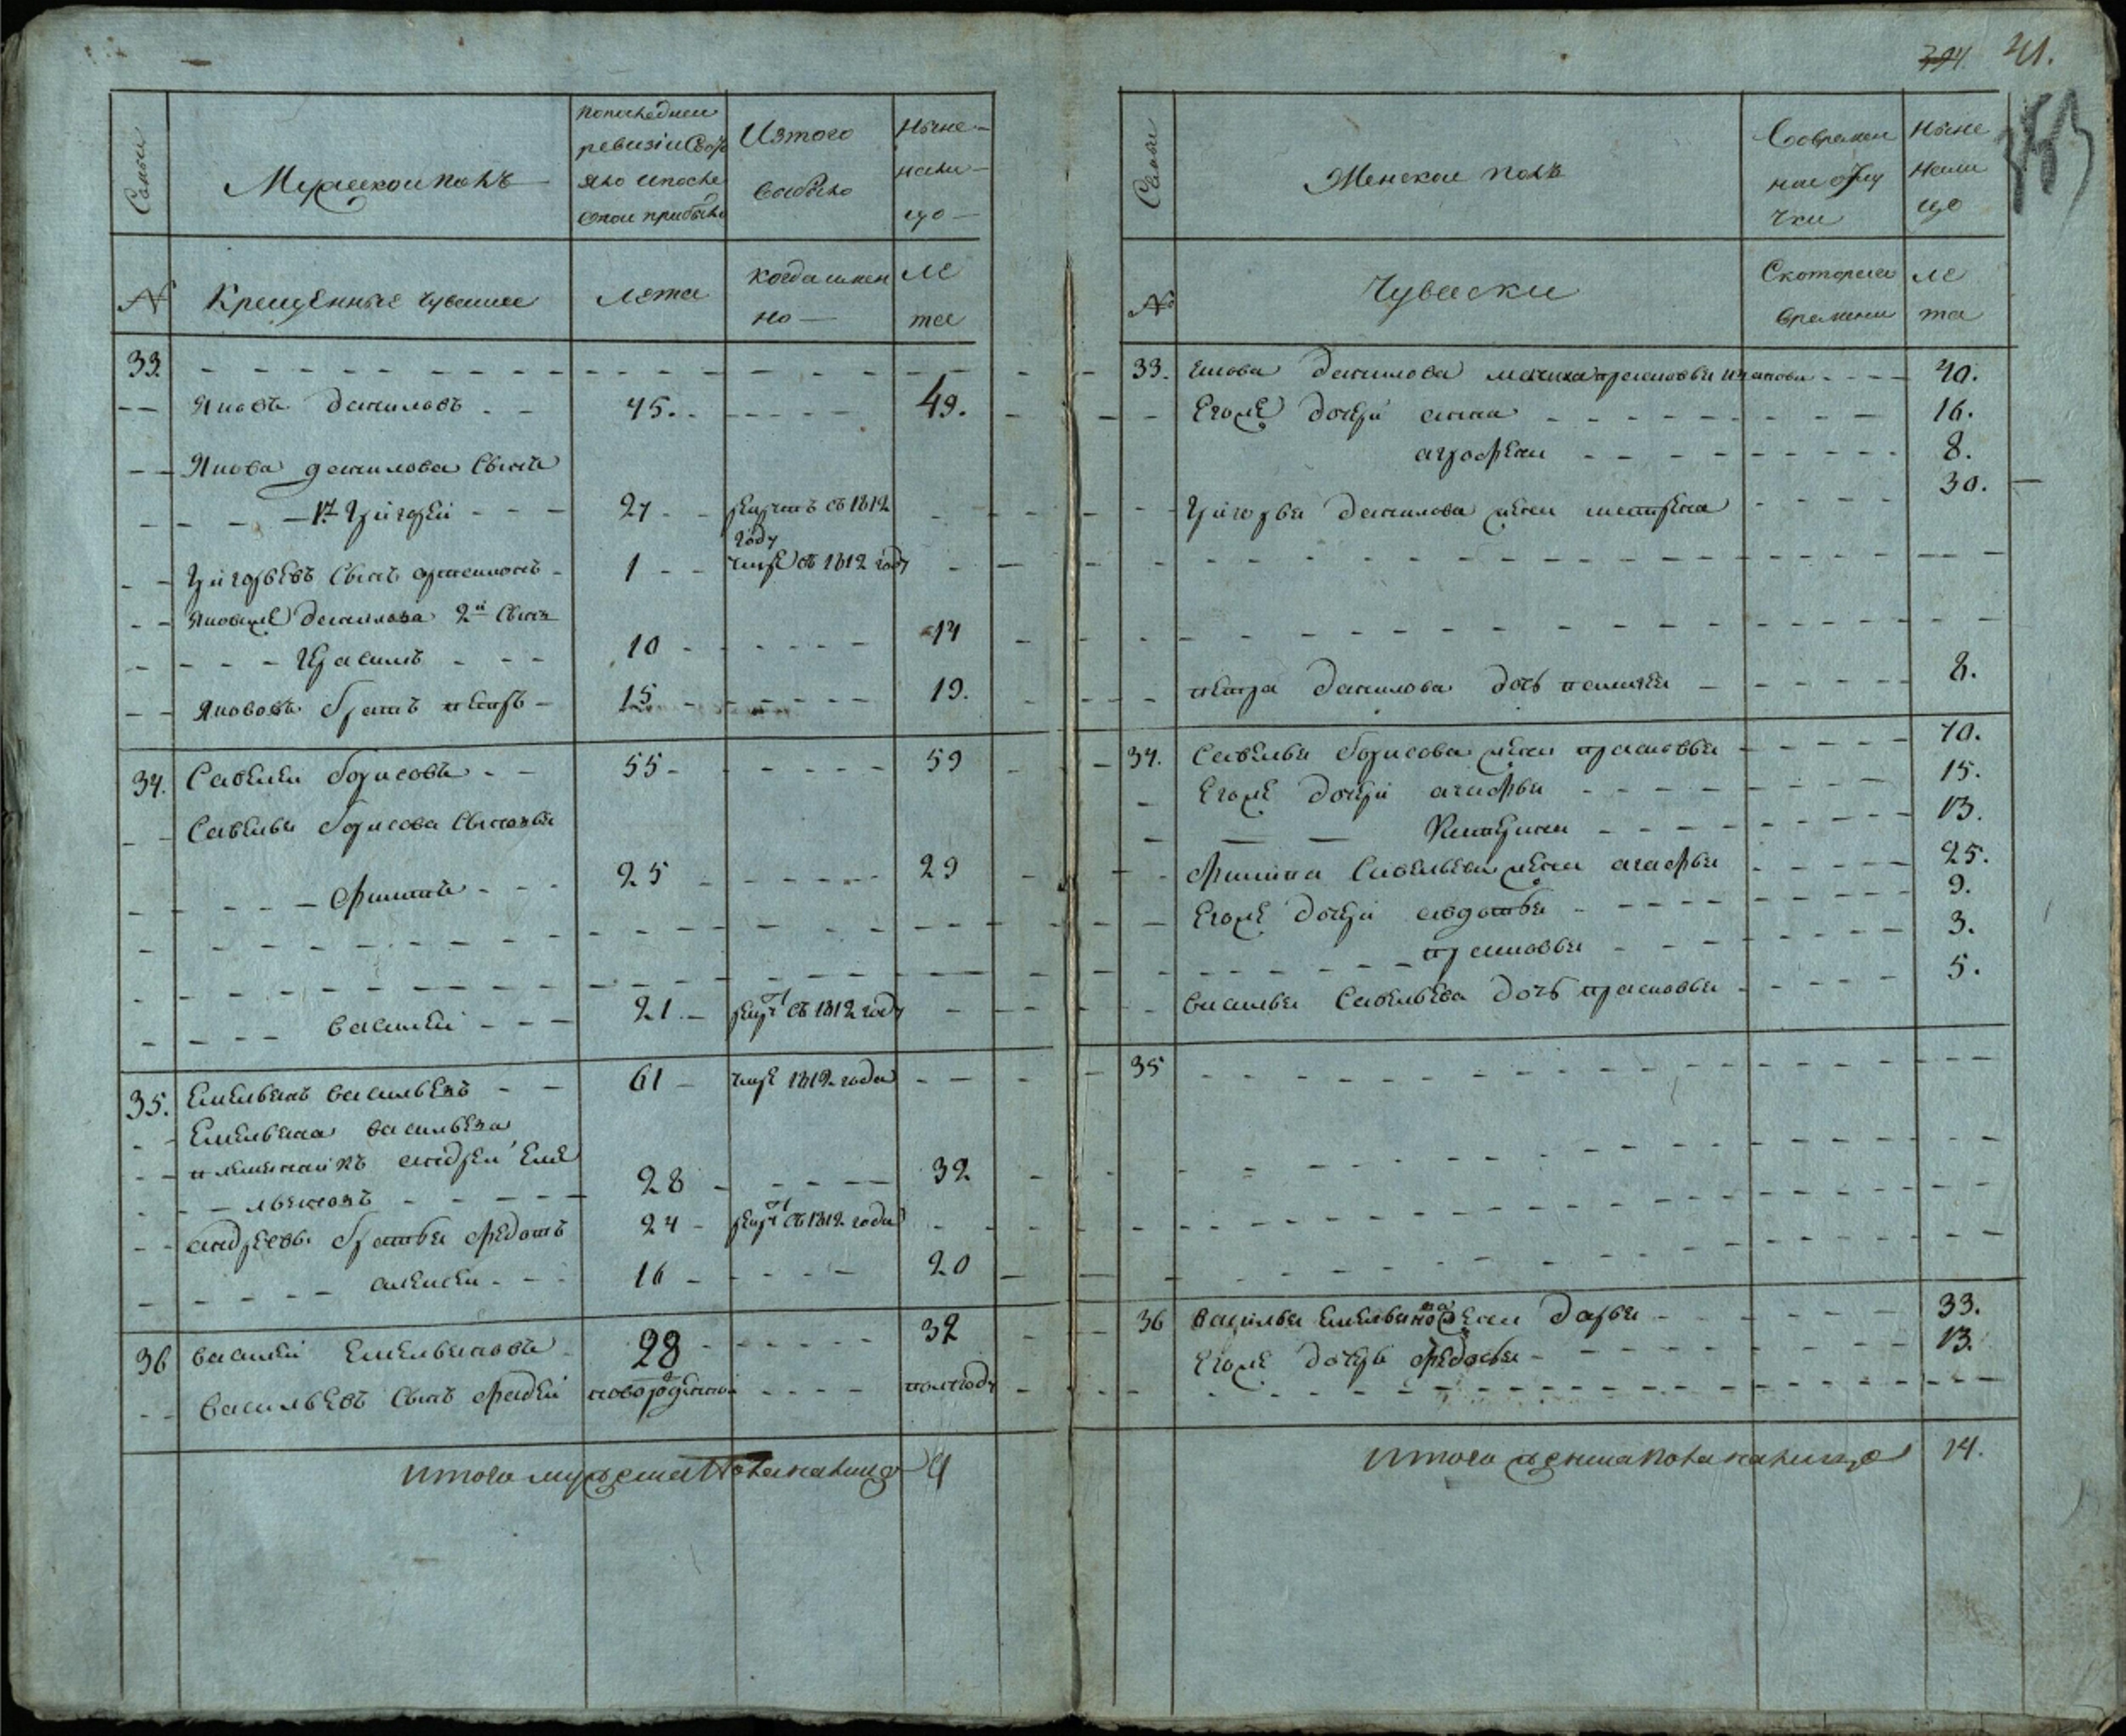 41.
Семьи
Мужеской полъ
Попоследней
ревизіи состо
яло ипосле
оной прибыло
Изтого
выбыло
Ныне
нали
цо
№
Крещенные чуваши
Лета
когда имен
но
ле
та
33.
Яковъ даниловъ 45. 49.
Якова данилова сынъ
1й Григорей 27 рекрутъ въ 1812
году
Григорьевъ сынъ 1 умре въ 1812 году
Яковаже данилова 2й сынъ
Герасимъ 10 14
Якововъ братъ петръ 15 19.
34. Савелей борисовъ 55 59
Савелья борисова сыновья
Филипъ 25 29
василей 21 рекрт въ 1812 году
35. Емельянъ васильевъ 61 умре 1812 года
Емельяна васильева
племянникъ андрей еме
льяновъ 28 32
андреевы братья федотъ 24 рекрт въ 1812 года
алексей 16 20
36 василей Емельяновъ 28 32
васильевъ сынъ фадей новорожденной полгоду
Итого мужеска пола налицо 9
Семьи
Женской полъ
Современ
ной отлу
чки
Ныне
нали
цо
№
Чуваски
Скоторого
времени
ле
та
33. Якова данилова мачиха прасковья 40.
Егоже дочери анна 16.
агрофена 8.
Григорья данилова жена матрена 30.
петра данилова дочь 8.
34. Савелья борисова жена прасковья 40.
Егоже дочери агафья 15.
Катерина 13.
Филипа Савельева жена агафья 25.
Егоже дочери авдотья 9.
прасковья 3.
василья Савельева дочь прасковья 5.
35
36 василья Емельянова жена дарья 33.
Егоже дочерь федосья 13.
Итого женска пола налицо 14.